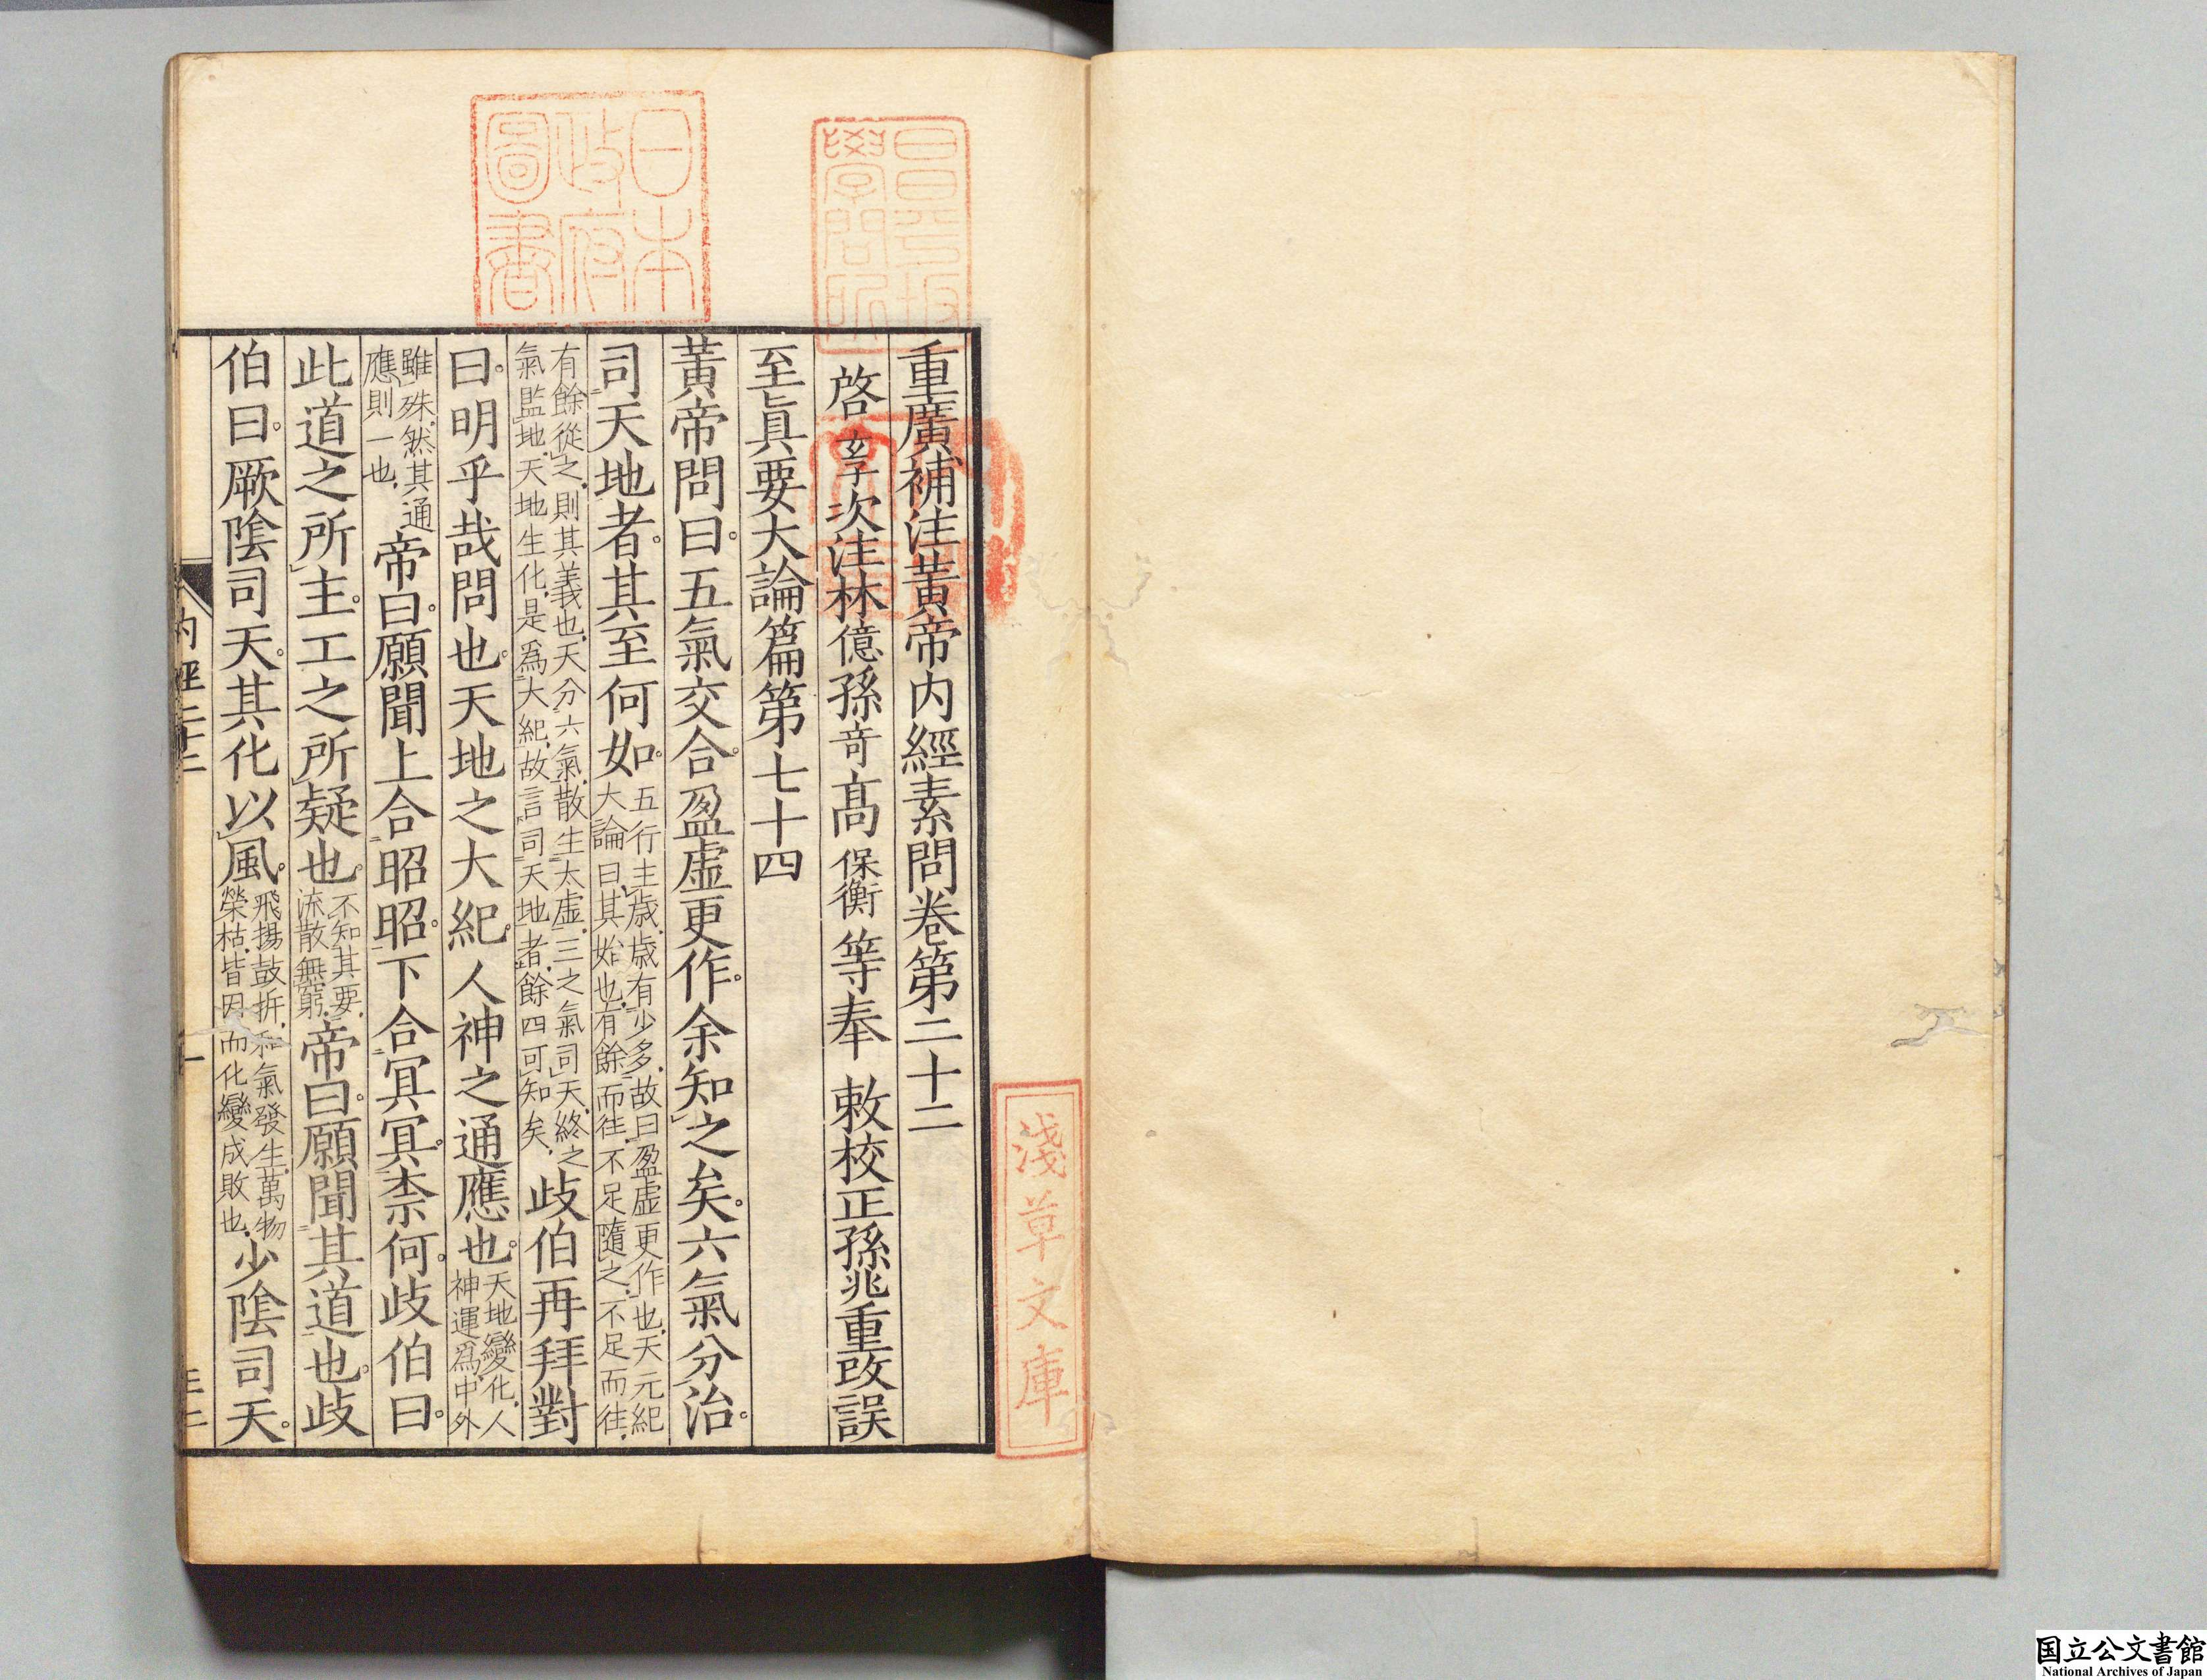 重廣補注黃帝内經素問卷第二十二
啓玄子次注林億孫竒高保衡等奉敕校正孫兆重改誤
至眞要大論篇第七十四
黃帝問曰。五氣交合。盈虛更作。余知之矣。六氣分治。
司天地者。其至何如。五行主歲。歲有少多。故曰盈虛更作也。天元紀
大論曰。其始也。有餘而往。不足隨之。不足而往。
有餘從之。則其義也。天分六氣。散生太虛。三之氣司天。終之
氣監地。天地生化。是爲大紀。故言司天地者。餘四可知矣。岐伯再拜對
曰。明乎哉問也。天地之大紀。人神之通應也。天地變化。人
神運爲。中外
雖殊。然其通
應則一也。帝曰。願聞上合昭昭。下合冥冥。柰何。岐伯曰。
此道之所主。工之所疑也。不知其要。
流散無窮。帝曰。願聞其道也。岐
伯曰。厥陰司天。其化以風。飛揚鼓拆。和氣發生。萬物
榮枯。皆因而化變成敗也。少陰司天。
内經二十二
一
日本政府圖書
昌平坂學問所
淺草文庫
国立公文書館
National Archives of Japan